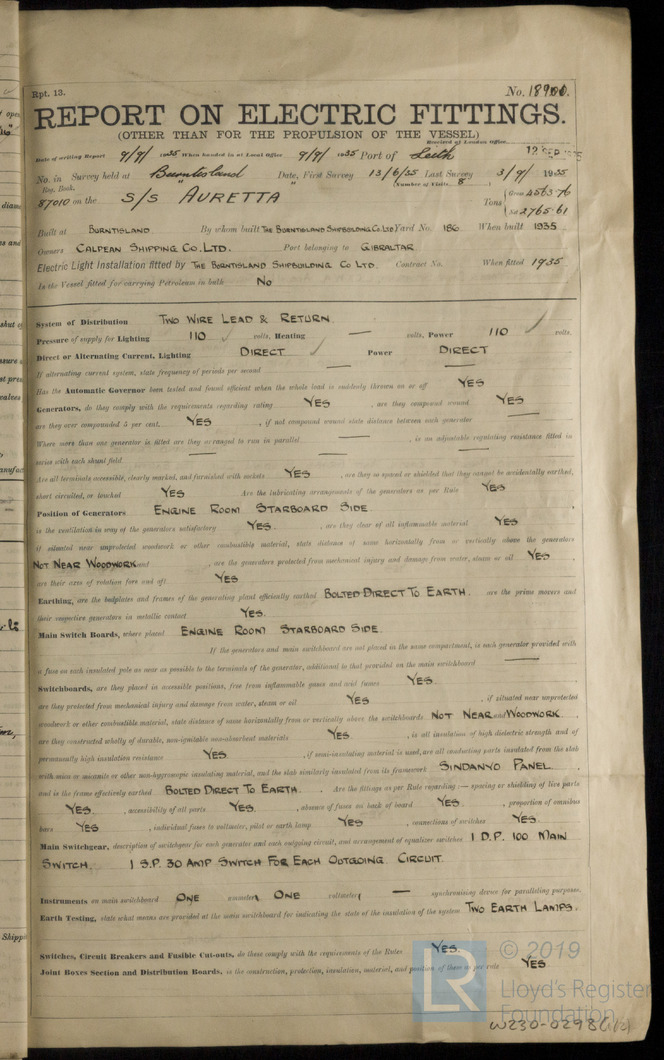 Rpt. 13. No. 18900.
REPORT ON ELECTRIC FITTINGS.
(OTHER THAN FOR THE PROPULSION OF THE VESSEL)
Received at London Office 12 SEP 1935
Date of writing Report 9/9/1935 When handed in at Local Office 9/9/1935 Port of Leith
No. in Survey held at Burntisland Date, First Survey 13/6/35 Last Survey 3/9/1935
Reg. Book. (Number of Visits 8)
87010 on the S/S "AURETTA" Tons { Gross 4563.76
Net 2765.61
Built at BURNTISLAND By whom built THE BURNTISLAND SHIPBUILDING CO. LTD Yard No. 186 When built 1935
Owners CALPEAN SHIPPING CO. LTD. Port belonging to GIBRALTAR
Electric Light Installation fitted by THE BURNTISLAND SHIPBUILDING CO LTD. Contract No. When fitted 1935
Is the Vessel fitted for carrying Petroleum in bulk NO
System of Distribution TWO WIRE LEAD & RETURN
Pressure of supply for Lighting 110 volts, Heating — volts, Power 110 volts.
Direct or Alternating Current, Lighting DIRECT Power DIRECT
If alternating current system, state frequency of periods per second —
Has the Automatic Governor been tested and found efficient when the whole load is suddenly thrown on or off YES
Generators, do they comply with the requirements regarding rating YES, are they compound wound YES
are they over compounded 5 per cent. YES, if not compound wound state distance between each generator —
Where more than one generator is fitted are they arranged to run in parallel —, is an adjustable regulating resistance fitted in
series with each shunt field —
Are all terminals accessible, clearly marked, and furnished with sockets YES, are they so spaced or shielded that they cannot be accidentally earthed,
short circuited, or touched YES Are the lubricating arrangements of the generators as per Rule YES
Position of Generators ENGINE ROOM STARBOARD SIDE
is the ventilation in way of the generators satisfactory YES, are they clear of all inflammable material YES
if situated near unprotected woodwork or other combustible material, state distance of same horizontally from or vertically above the generators
NOT NEAR WOODWORK and, are the generators protected from mechanical injury and damage from water, steam or oil YES
are their axes of rotation fore and aft YES
Earthing, are the bedplates and frames of the generating plant efficiently earthed BOLTED DIRECT TO EARTH are the prime movers and
their respective generators in metallic contact YES.
Main Switch Boards, where placed ENGINE ROOM STARBOARD SIDE
If the generators and main switchboard are not placed in the same compartment, is each generator provided with
a fuse on each insulated pole as near as possible to the terminals of the generator, additional to that provided on the main switchboard —
Switchboards, are they placed in accessible positions, free from inflammable gases and acid fumes YES
are they protected from mechanical injury and damage from water, steam or oil YES, if situated near unprotected
woodwork or other combustible material, state distance of same horizontally from or vertically above the switchboards NOT NEAR and WOODWORK
are they constructed wholly of durable, non-ignitable non-absorbent materials YES, is all insulation of high dielectric strength and of
permanently high insulation resistance YES, if semi-insulating material is used, are all conducting parts insulated from the slab
with mica or micanite or other non-hygroscopic insulating material, and the slab similarly insulated from its framework SINDANYO PANEL.
and is the frame effectively earthed BOLTED DIRECT TO EARTH. Are the fittings as per Rule regarding:— spacing or shielding of live parts
YES, accessibility of all parts YES, absence of fuses on back of board YES, proportion of omnibus
bars YES, individual fuses to voltmeter, pilot or earth lamp YES, connections of switches YES
Main Switchgear, description of switchgear for each generator and each outgoing circuit, and arrangement of equalizer switches 1 D.P. 100 MAIN
SWITCH. 1 S.P. 30 AMP SWITCH FOR EACH OUTGOING CIRCUIT.
Instruments on main switchboard ONE ammeter ONE voltmeter — synchronising device for paralleling purposes.
Earth Testing, state what means are provided at the main switchboard for indicating the state of the insulation of the system TWO EARTH LAMPS.
Switches, Circuit Breakers and Fusible Cut-outs, do these comply with the requirements of the Rules YES.
Joint Boxes Section and Distribution Boards, is the construction, protection, insulation, material, and position of these as per rule YES
LR © 2019
Lloyd's Register
Foundation
W230-0298(1/2)